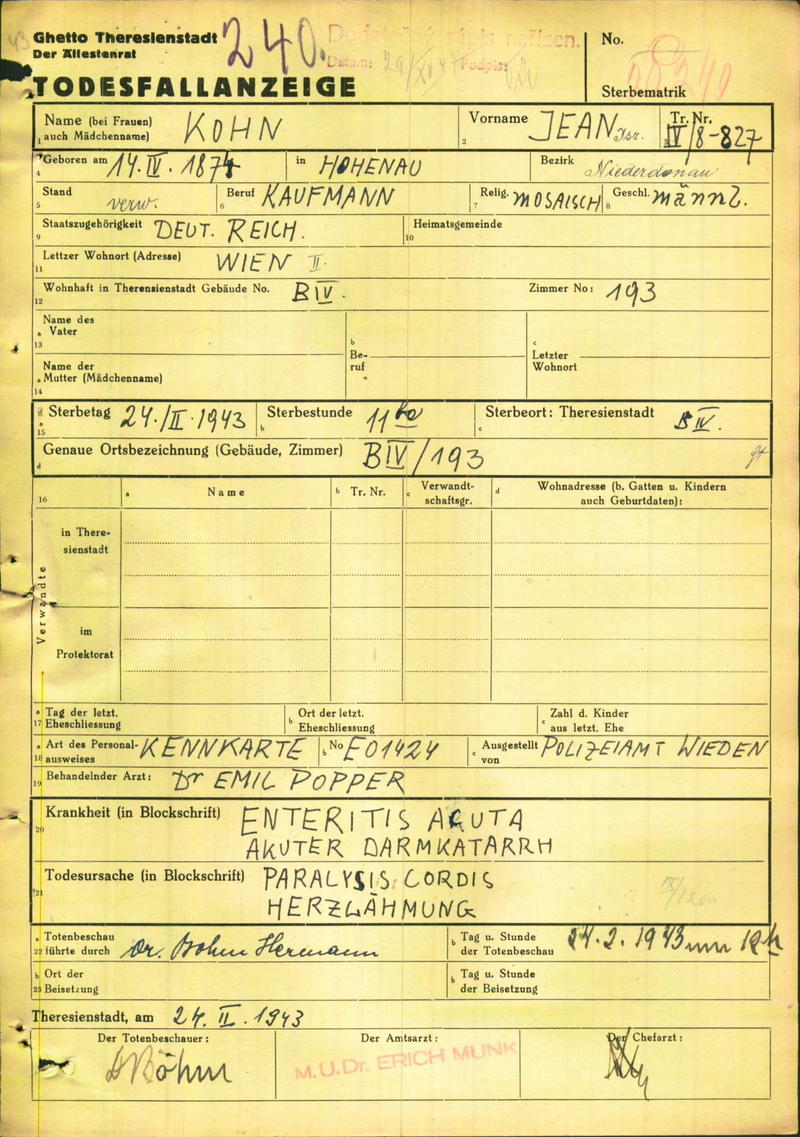 Ghetto Theresienstadt
Der Ältestenrat
240.
Datum: Podpis:
No.
Sterbematrik
TODESFALLANZEIGE
Name (bei Frauen) auch Mädchenname) KOHN
1
Vorname JEAN Isr.
2
Tr. Nr. IV/8-827
3
Geboren am 14. IV. 1874 in HOHENAU Bezirk Niederdonau
4
Stand verw. Beruf KAUFMANN Relig. MOSAISCH Geschl. männl.
5 6 7 8
Staatszugehörigkeit DEUT. REICH. Heimatsgemeinde
9 10
Lettzer Wohnort (Adresse) WIEN II.
11
Wohnhaft in Therensienstadt Gebäude No. B IV. Zimmer No: 193
12
Name des
a Vater
13
b
Be-
ruf
c
Letzter
Wohnort
Name der
a Mutter (Mädchenname)
14
Sterbetag 24./II. 1943 b Sterbestunde 11 c Sterbeort: Theresienstadt B IV.
15
d Genaue Ortsbezeichnung (Gebäude, Zimmer) B IV/193
16 a Name b Tr. Nr. c Verwandt-schaftsgr. d Wohnadresse (b. Gatten u. Kindern auch Geburtdaten):
Verwandte
in There-
sienstadt
im
Protektorat
a Tag der letzt. b Ort der letzt. c Zahl d. Kinder
17 Eheschliessung Eheschliessung aus letzt. Ehe
a Art des Personal-ausweises KENNKARTE b No E01424 c Ausgestellt von POLIZEIAMT WIEDEN
18
Behandelnder Arzt: Dr EMIL POPPER
19
Krankheit (in Blockschrift) ENTERITIS ACUTA
20 AKUTER DARMKATARRH
Todesursache (in Blockschrift) PARALYSIS CORDIS
21 HERZLÄHMUNG
a Totenbeschau führte durch Dr. Böhm Hermann b Tag u. Stunde der Totenbeschau 24.2.1943 um 12h
22
b Ort der b Tag u. Stunde
23 Beisetzung der Beisetzung
Theresienstadt, am 24. II. 1943
Der Totenbeschauer: Der Amtsarzt: Der Chefarzt:
DrBöhm M.U.Dr. ERICH MUNK